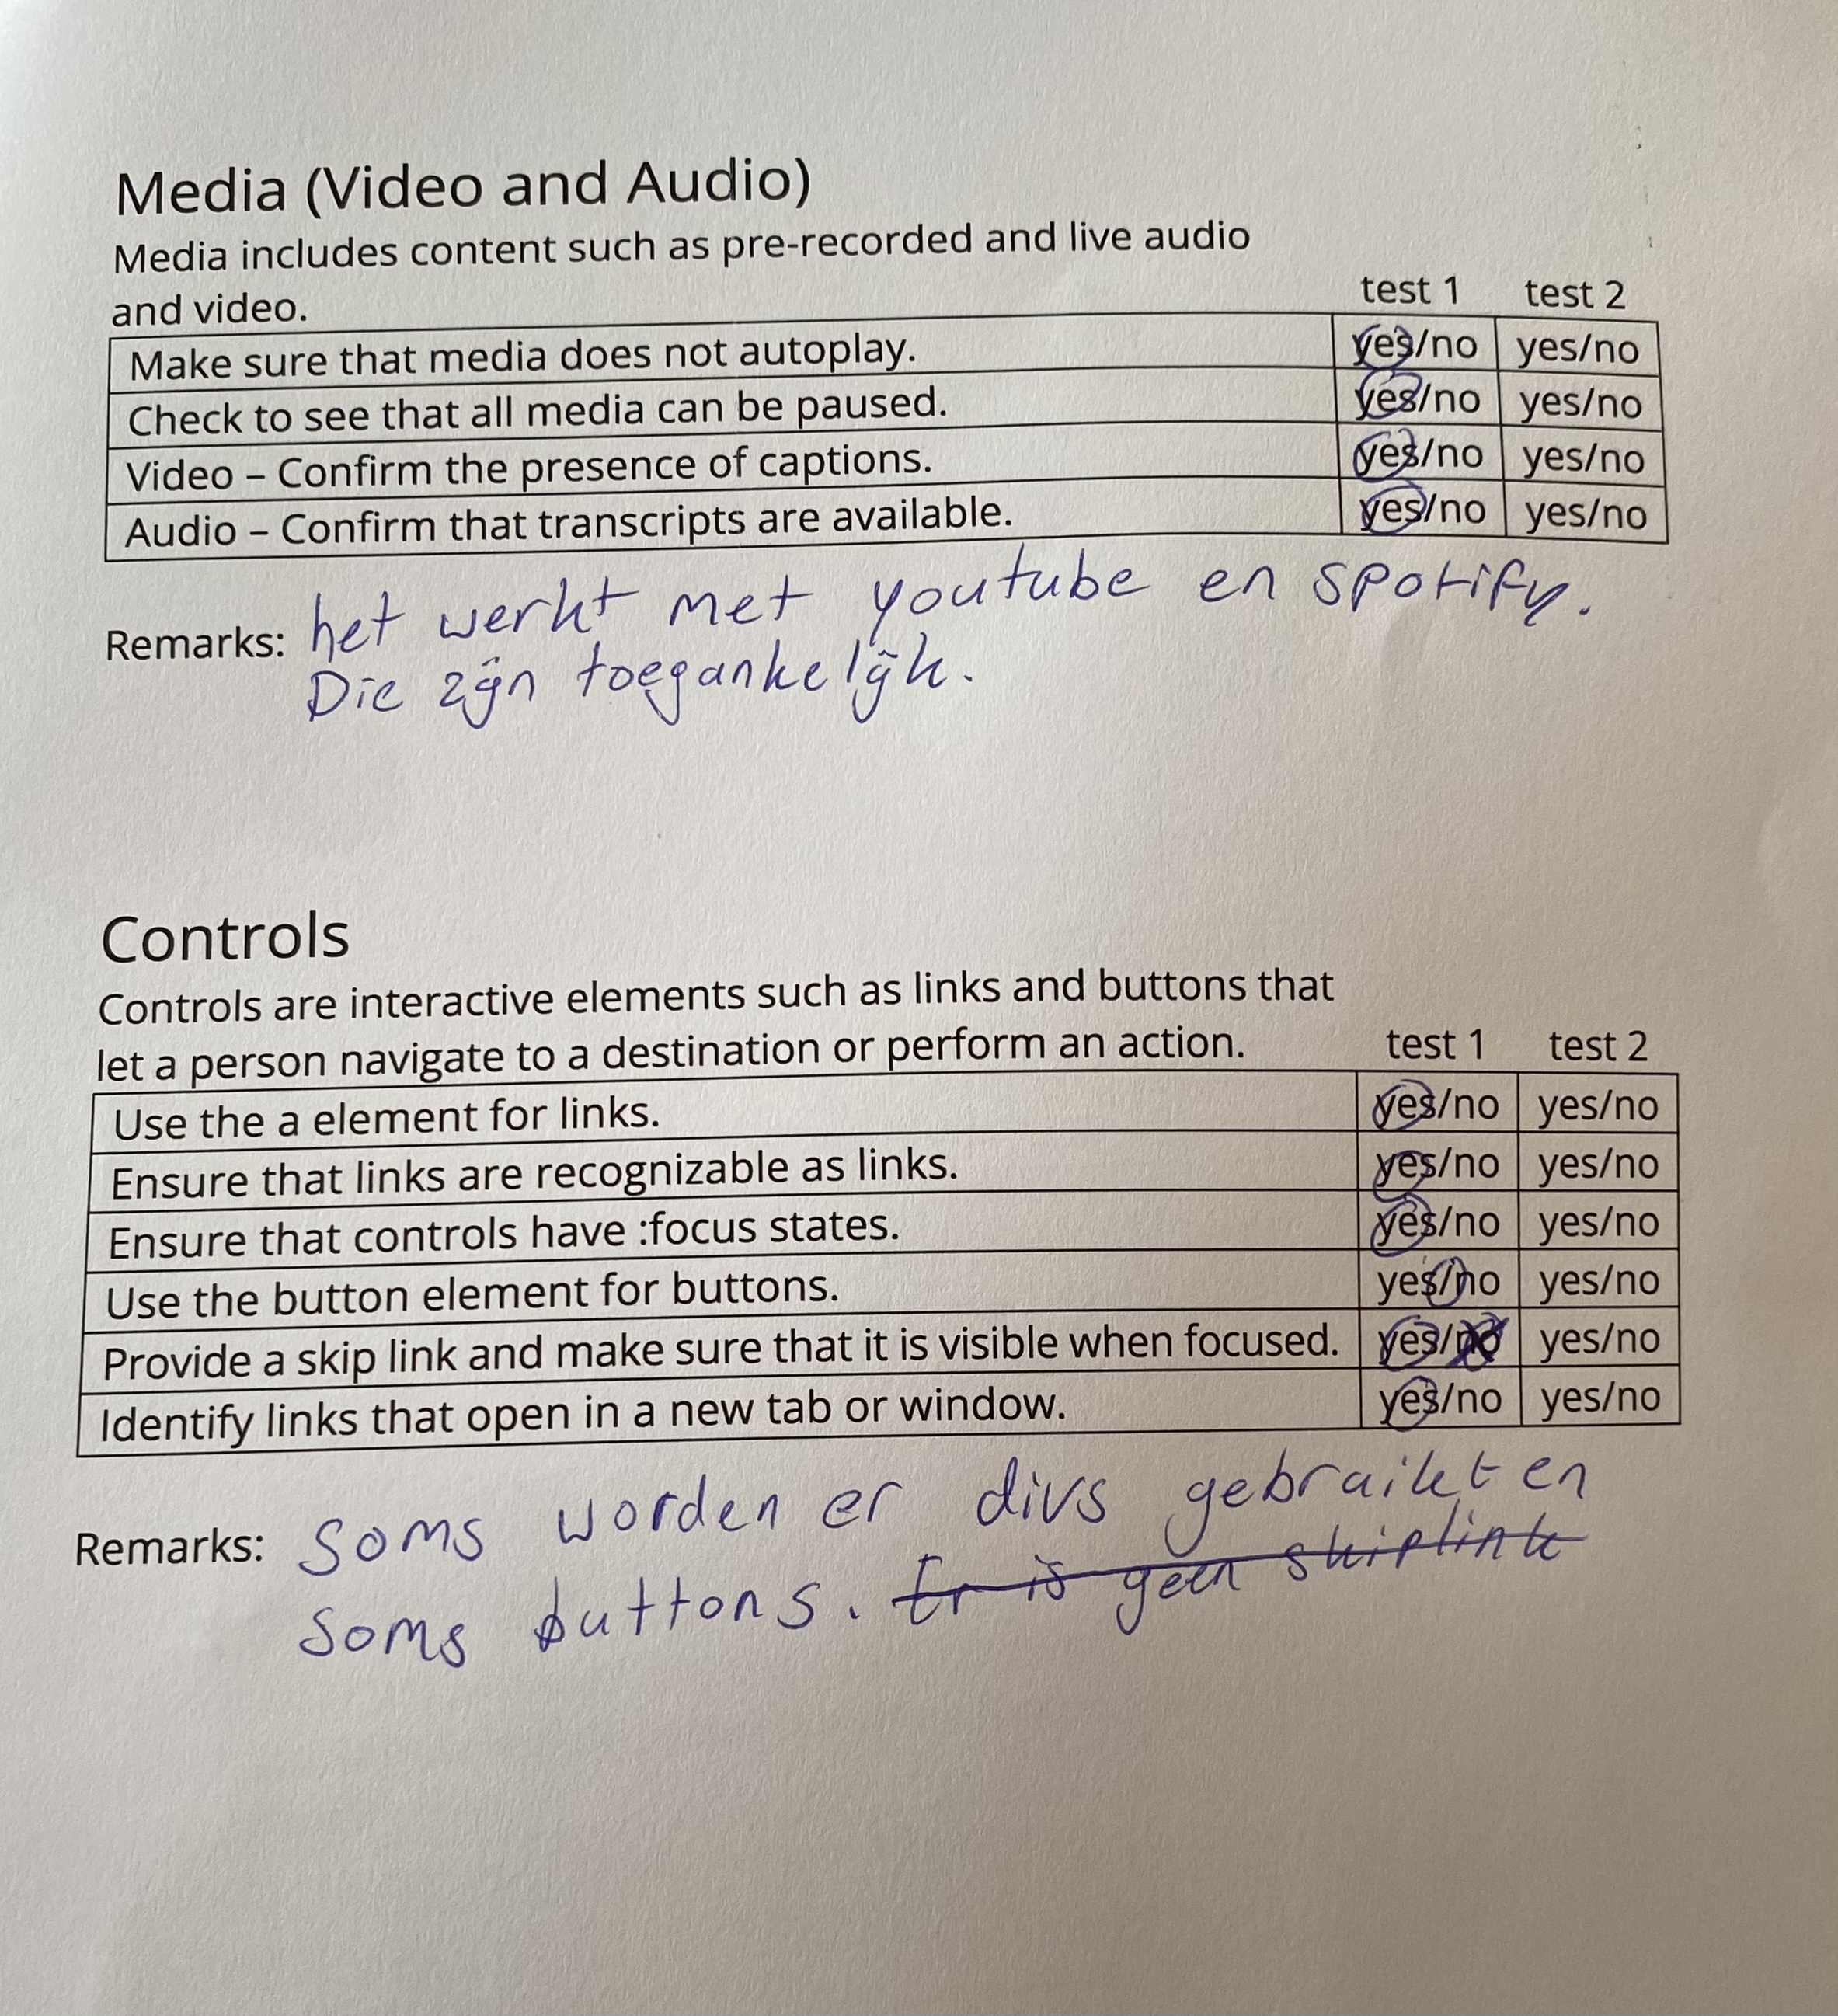 Media (Video and Audio)
Media includes content such as pre-recorded and live audio
and video. test 1 test 2
Make sure that media does not autoplay. yes/no yes/no
Check to see that all media can be paused. yes/no yes/no
Video – Confirm the presence of captions. yes/no yes/no
Audio – Confirm that transcripts are available. yes/no yes/no
Remarks: het werkt met youtube en spotify.
Die zijn toegankelijk.
Controls
Controls are interactive elements such as links and buttons that
let a person navigate to a destination or perform an action. test 1 test 2
Use the a element for links. yes/no yes/no
Ensure that links are recognizable as links. yes/no yes/no
Ensure that controls have :focus states. yes/no yes/no
Use the button element for buttons. yes/no yes/no
Provide a skip link and make sure that it is visible when focused. yes/no yes/no
Identify links that open in a new tab or window. yes/no yes/no
Remarks: soms worden er divs gebruikt en
soms buttons. Er is geen skiplink